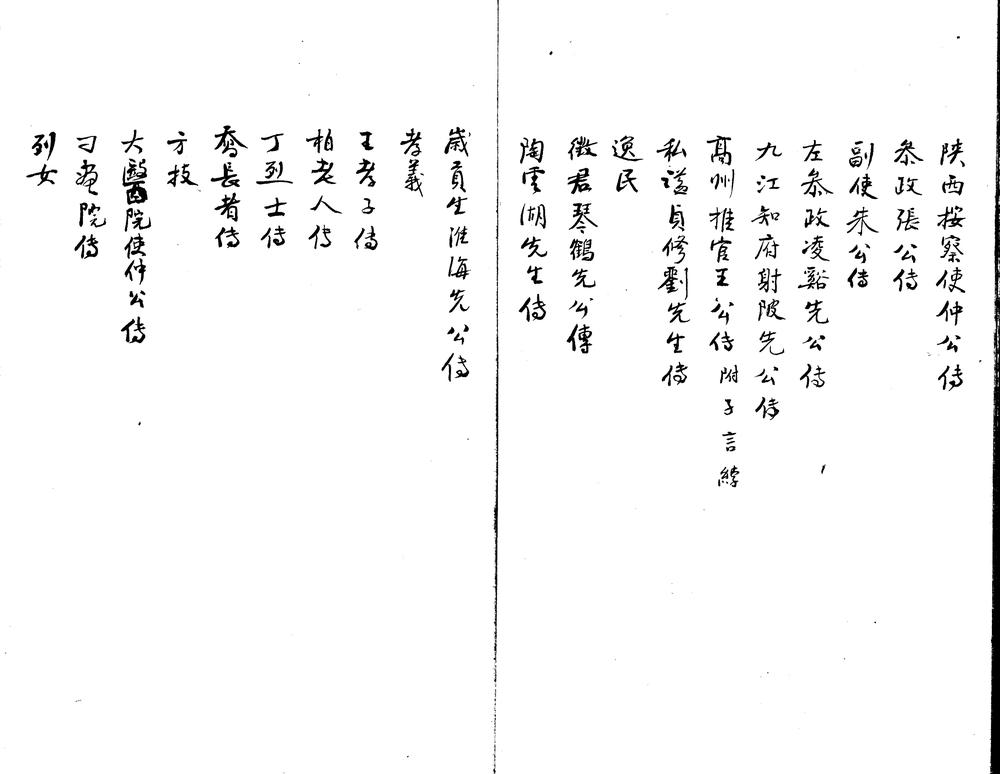 陕西按察使仲公傳
叅政張公傳
副使朱公傳
左叅政凌谿先公傳
九江知府射陂先公傳
髙州推官王公傳附子言綍
私謚貞修劉先生傳
逸民
徵君琴鶴先公傳
陶雲湖先生傳
歲貢生淮海先公傳
孝義
王孝子傳
柏老人傳
丁烈士傳
喬長者傳
方技
大醫院使仲公傳
刁畫院傳
列女